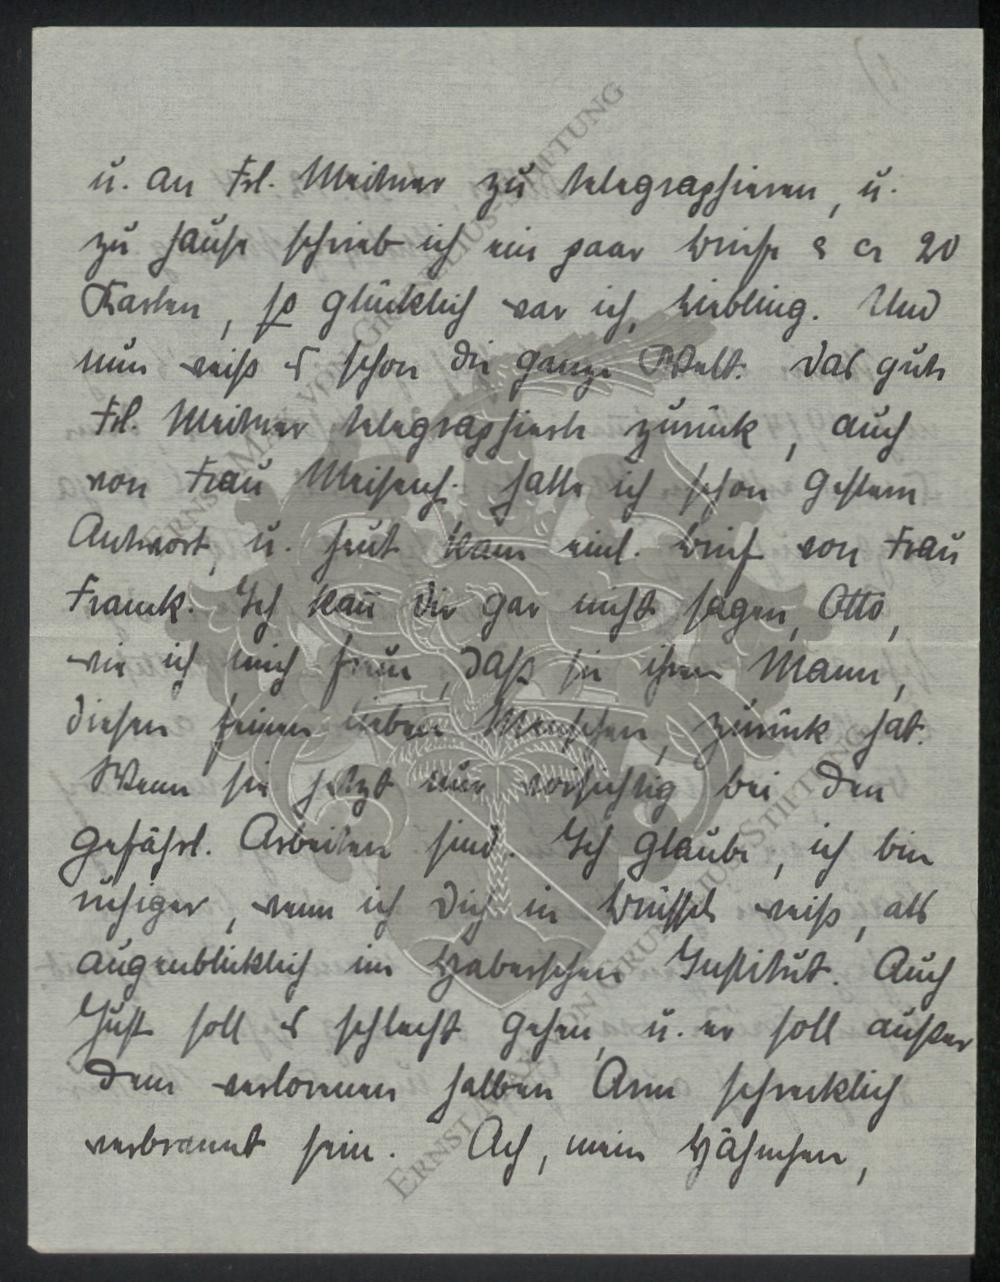 u. an Frl. Meitner zu telegraphieren, u.
zu Hause schrieb ich ein paar Briefe & ca 20
Karten, so glücklich war ich, Liebling. Und
nun weiß es schon die ganze Welt. Das gute
Frl. Meitner telegraphierte zurück, auch
von Frau hatte ich schon gestern
Antwort, u. heut kam einl. Brief von Frau
Franck. Ich kan̄ Dir gar nicht sagen, Otto,
wie ich mich freue, daß sie ihren Mann,
diesen feinen lieben Menschen, zurück hat.
Wenn sie jetzt nur vorsichtig bei den
gefährl. Arbeiten sind. Ich glaube, ich bin
ruhiger, wenn ich Dich in Brüssel weiß, als
augenblicklich im Haberschen Institut. Auch
Just soll es schlecht gehen, u. er soll außer
dem verlorenen halben Arm schrecklich
verbrannt sein. Ach, mein Hähnchen,
ERNST MAX VON GRUNELIUS-STIFTUNG
ERNST MAX VON GRUNELIUS-STIFTUNG